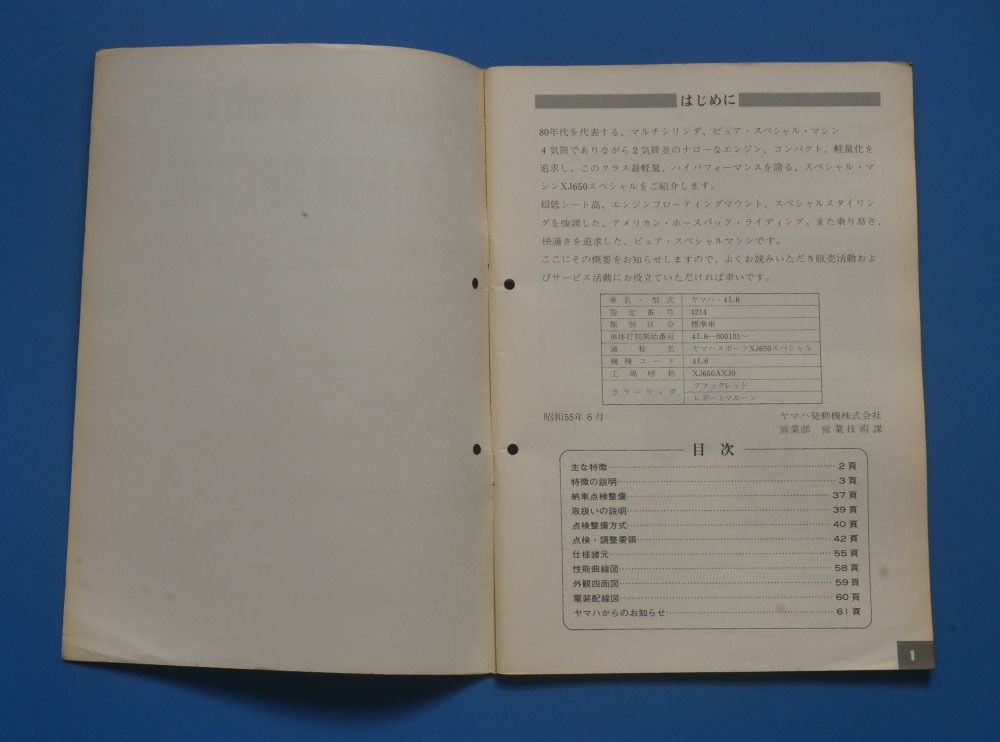 はじめに
80年代を代表する、マルチシリンダ、ピュア・スペシャル・マシン
4気筒でありながら2気筒並のナローなエンジン、コンパクト、軽量化を
追求し、このクラス最軽量、ハイパフォーマンスを誇る、スペシャル・マ
シンXJ650スペシャルをご紹介します。
超低シート高、エンジンフローティングマウント、スペシャルスタイリン
グを強調した、アメリカン・ホースバック・ライディング。また乗り易さ、
快適さを追求した、ピュア・スペシャルマシンです。
ここにその概要をお知らせしますので、よくお読みいただき販売活動およ
びサービス活動にお役立ていただければ幸いです。
車名・型式 ヤマハ・4L6
指定番号 4214
類別区分 標準車
車体打刻開始番号 4L6-000101~
通称名 ヤマハスポーツXJ650スペシャル
機種コード 4L6
工場呼称 XJ650AXJ0
カラーリング ブラックレッド
レガートマルーン
昭和55年6月 ヤマハ発動機株式会社
営業部 営業技術課
目次
主な特徴 2頁
特徴の説明 3頁
納車点検整備 37頁
取扱いの説明 39頁
点検整備方式 40頁
点検・調整要領 42頁
仕様諸元 55頁
性能曲線図 58頁
外観四面図 59頁
電装配線図 60頁
ヤマハからのお知らせ 61頁
1